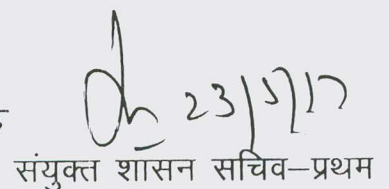 23/5/17
संयुक्त शासन सचिव–प्रथम